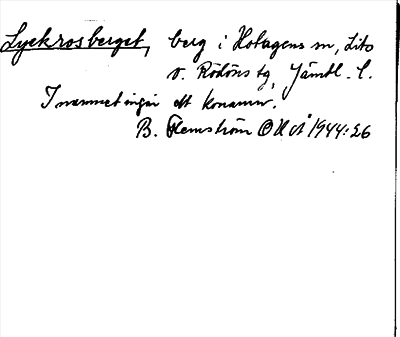 Lyckrosberget, berg i Hotagens sn, Lits
o. Rödöns tg, Jämtl. l.
I namnet ingår ett konamn.
B. Flemström OUÅ 1944:26